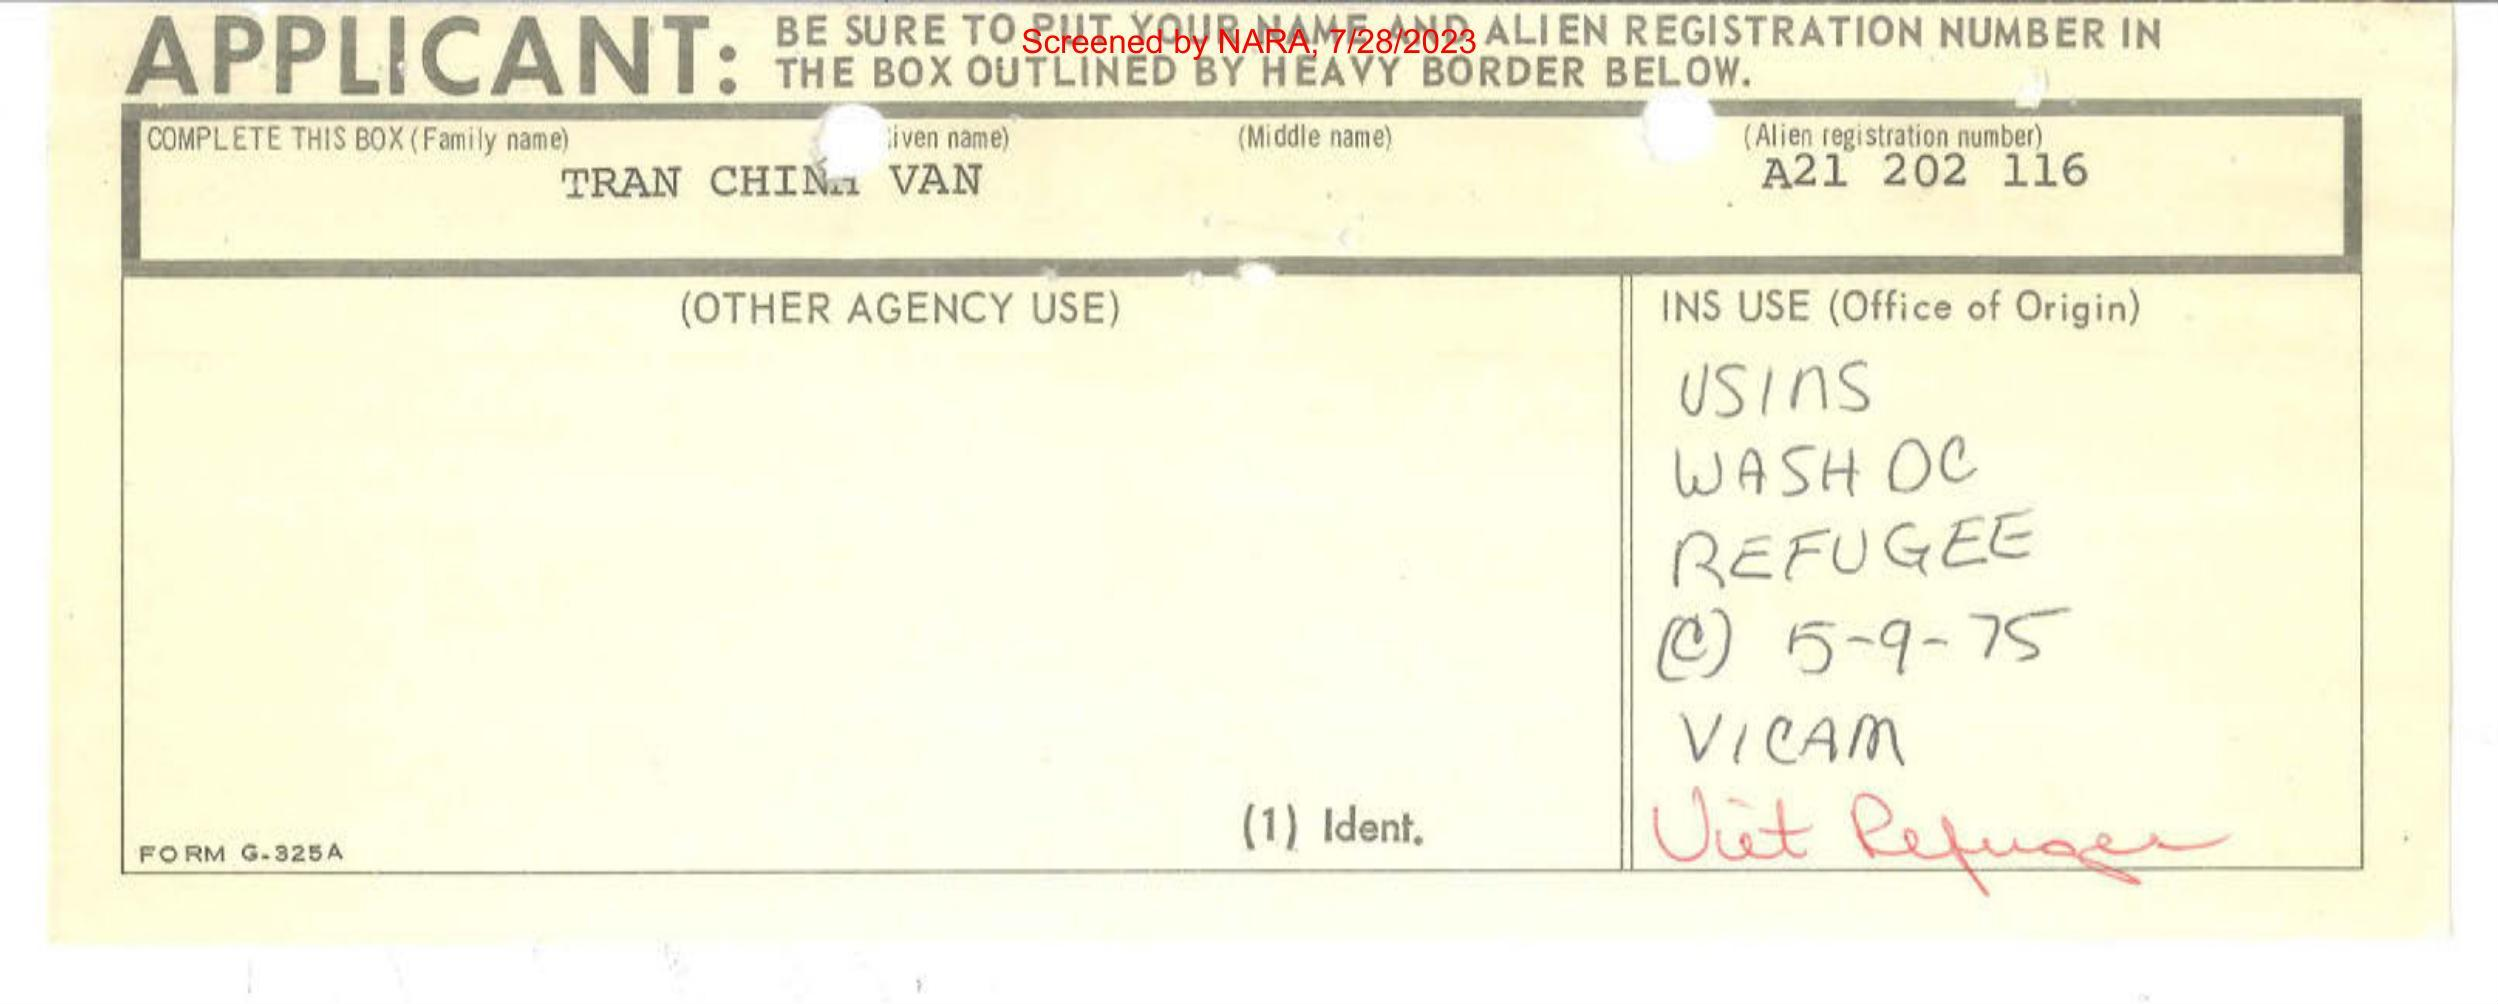 APPLICANT: BE SURE TO PUT YOUR NAME AND ALIEN REGISTRATION NUMBER IN
THE BOX OUTLINED BY HEAVY BORDER BELOW.
Screened by NARA, 7/28/2023
COMPLETE THIS BOX (Family name) iven name) (Middle name) (Alien registration number)
TRAN CHINH VAN A21 202 116
(OTHER AGENCY USE) INS USE (Office of Origin)
USINS
WASH DC
REFUGEE
(C) 5-9-75
VICAM
(1) Ident.
Viet Refugee
FORM G-325A